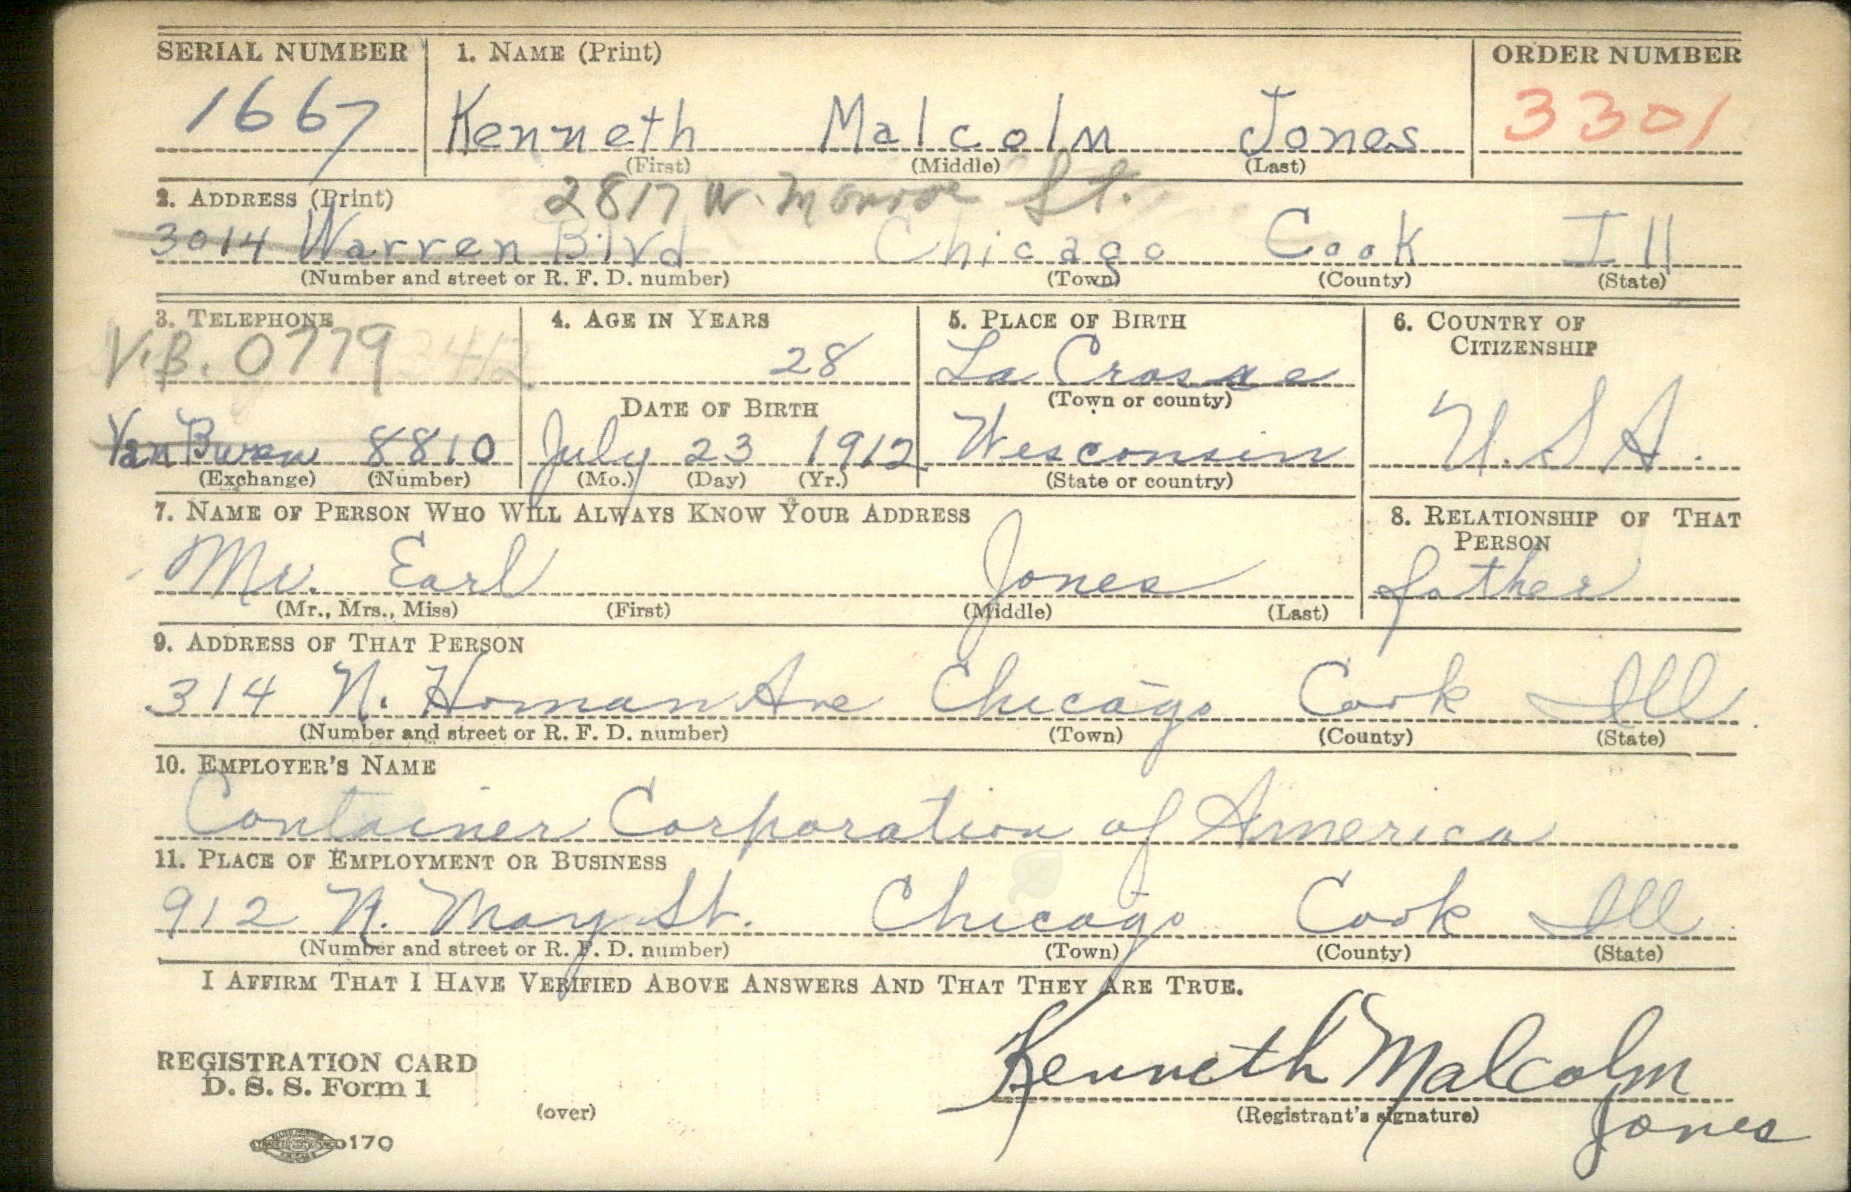 SERIAL NUMBER 1. NAME (Print) ORDER NUMBER
1667 Kenneth Malcolm Jones 3301
(First) (Middle) (Last)
2. ADDRESS (Print) 2817 W. Monroe St.
3014 Warren Blvd Chicago Cook Ill
(Number and street or R. F. D. number) (Town) (County) (State)
3. TELEPHONE 4. AGE IN YEARS 5. PLACE OF BIRTH 6. COUNTRY OF CITIZENSHIP
V.B. 0779 3412 28 La Crosse
(Town or county)
DATE OF BIRTH
Van Buren 8810 July 23 1912 Wesconsin U.S.A.
(Exchange) (Number) (Mo.) (Day) (Yr.) (State or country)
7. NAME OF PERSON WHO WILL ALWAYS KNOW YOUR ADDRESS 8. RELATIONSHIP OF THAT PERSON
Mr. Earl Jones father
(Mr., Mrs., Miss) (First) (Middle) (Last)
9. ADDRESS OF THAT PERSON
314 N. Homan Ave Chicago Cook Ill
(Number and street or R. F. D. number) (Town) (County) (State)
10. EMPLOYER'S NAME
Container Corporation of America
11. PLACE OF EMPLOYMENT OR BUSINESS
912 N. May St. Chicago Cook Ill
(Number and street or R. F. D. number) (Town) (County) (State)
I AFFIRM THAT I HAVE VERIFIED ABOVE ANSWERS AND THAT THEY ARE TRUE.
Kenneth Malcolm Jones
REGISTRATION CARD
D. S. S. Form 1
(over) (Registrant's signature)
170